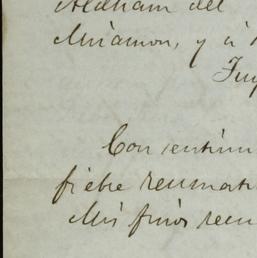 Aldham del
Miramon, y á
Con sentim
fiebre reumat
Mis finos recu